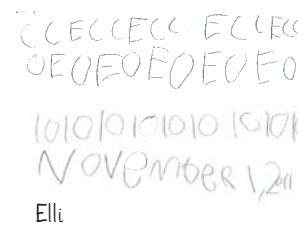 CCECCECC ECCECC
OEOEOEOEOEO
1010101010101010 1010
NOVEMBER 1, 2011
Elli